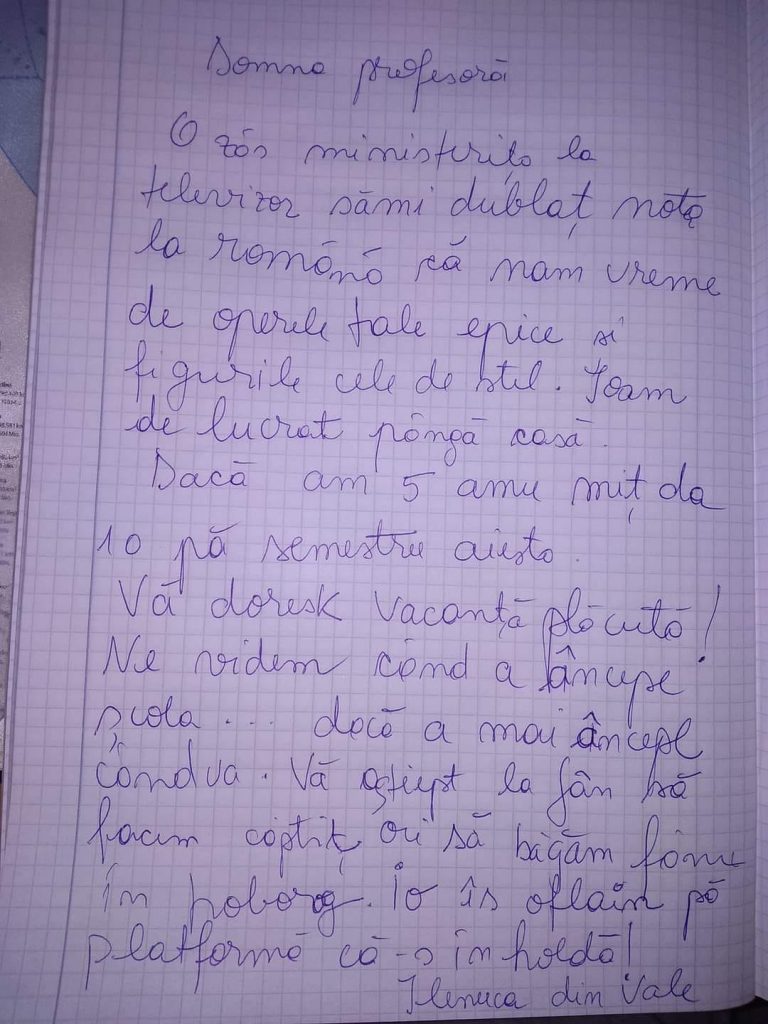 Domna profesoră
O zâs ministeriţo la
televizor sămi dublaţ notę
la română că nam vreme
de operele tale epice si
figurile cele de stil. Ioam
de lucrat pângă casă.
Dacă am 5 amu miţ da
10 pă semestru aiesta.
Vă doresk vacanţă plăcută!
Ne videm când a âncepe
şcola... dacă a mai âncepe
cândva. Vă aştept la fân să
facem căptiţ ori să băgăm fânu
în hoborog. Io îs oflain pă
platformă că-s în holdă!
Ilenuca din Vale